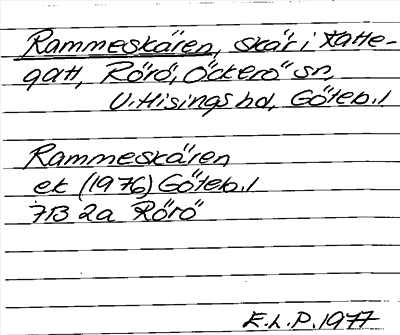 Rammeskären, skär i Katte-
gatt, Rörö, Öckerö sn,
V. Hisings hd, Göteb. l
Rammeskären
ek (1976) Göteb. l
7B 2a Rörö
E.L.P. 1977